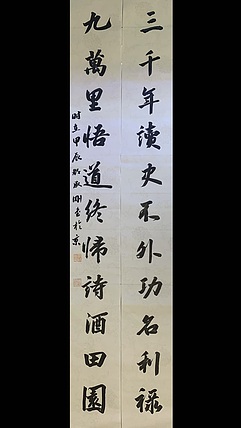 三千年讀史不外功名利祿
九萬里悟道終歸詩酒田園
時在甲辰